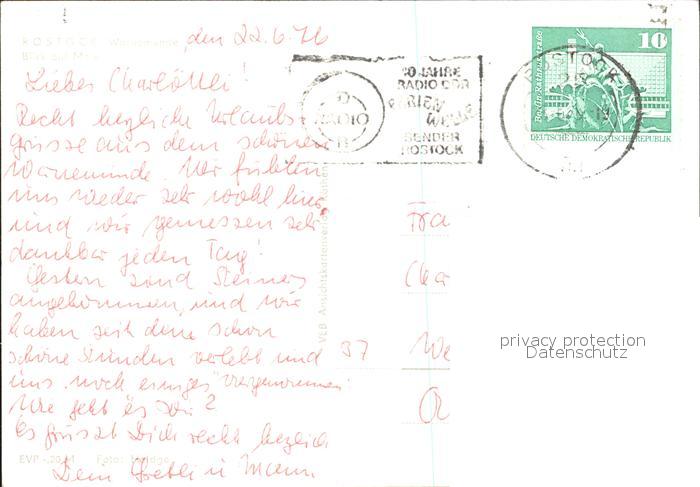 ROSTOCK Warnemünde
den 22.6.76
Blick auf
Liebes Charlottli!
Recht herzliche Urlaubs-
grüsse aus dem schönen
Warnemünde. Wir fühlen
uns wieder sehr wohl hier,
und wir geniessen sehr
dankbar jeden Tag!
Gestern sind Steiners
angekommen, und wir
haben seit dem schon
schöne Stunden verlebt und
uns "noch einiges" vorgenommen.
Wie geht es Dir?
Es grüsst Dich recht herzlich
Dein Gretli u Mann
EVP -,20 M Foto:
VEB Ansichtskartenverlag
RADIO
10 JAHRE
RADIO DDR
FERIEN
WELLE
SENDER
ROSTOCK
10
Berlin, Rathausstraße
DEUTSCHE DEMOKRATISCHE REPUBLIK
ROSTOCK
Fra
Char
37 We
privacy protection
Datenschutz